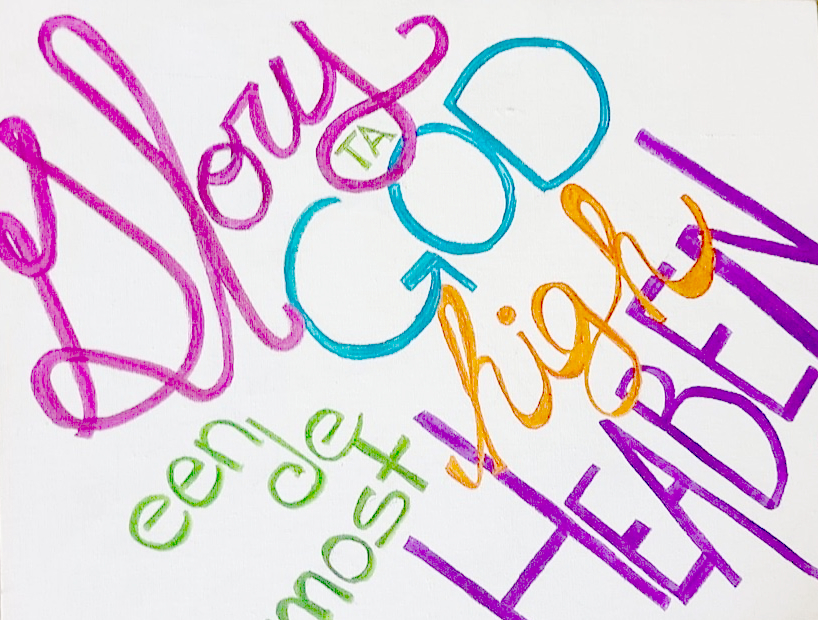 Glory TA GOD
een de
most high
HEABEN